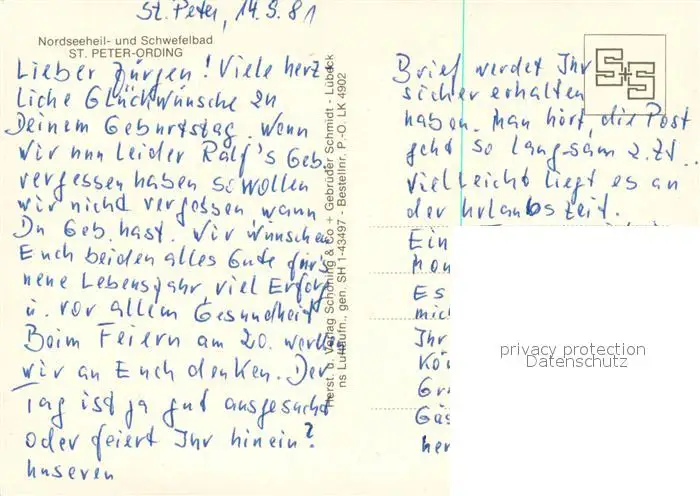 St. Peter, 14.9.81
Nordseeheil- und Schwefelbad
ST. PETER-ORDING
Lieber Jürgen! Viele herz
liche Glückwünsche zu
Deinem Geburtstag. Wenn
wir nun leider Ralf's Geb.
vergessen haben so wollen
wir nicht vergessen, wann
Du Geb. hast. Wir wünschen
Euch beiden alles Gute für's
neue Lebensjahr, viel Erfolg
u. vor allem Gesundheit
Beim Feiern am 20. werden
wir an Euch denken. Der
Tag ist ja gut ausgesucht
oder feiert Ihr hinein?
Unseren
Herst. u. Verlag Schöning & Co + Gebrüder Schmidt - Lübeck
ns Luftaufn., gen. SH 1-43497 - Bestellnr. P.-O. LK 4902
S+S
Brief werdet Ihr
sicher erhalten
haben. Man hört, die Post
geht so langsam z. Zt..
Vielleicht liegt es an
der Urlaubszeit.
Ein
Es
mic
Ihr
Kö
Gr
Gäs
her
privacy protection
Datenschutz